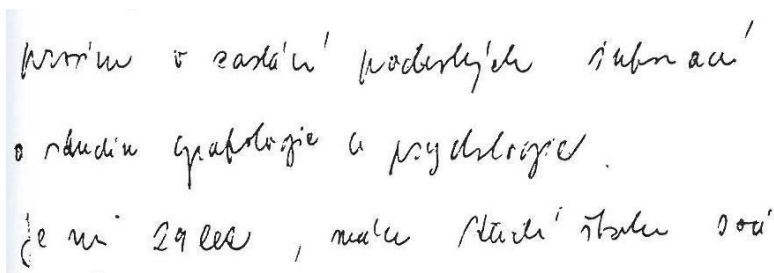 prosím o zaslání podrobných informací
o studiu grafologie a psychologie.
je mi 29 let, mám střední školu soci